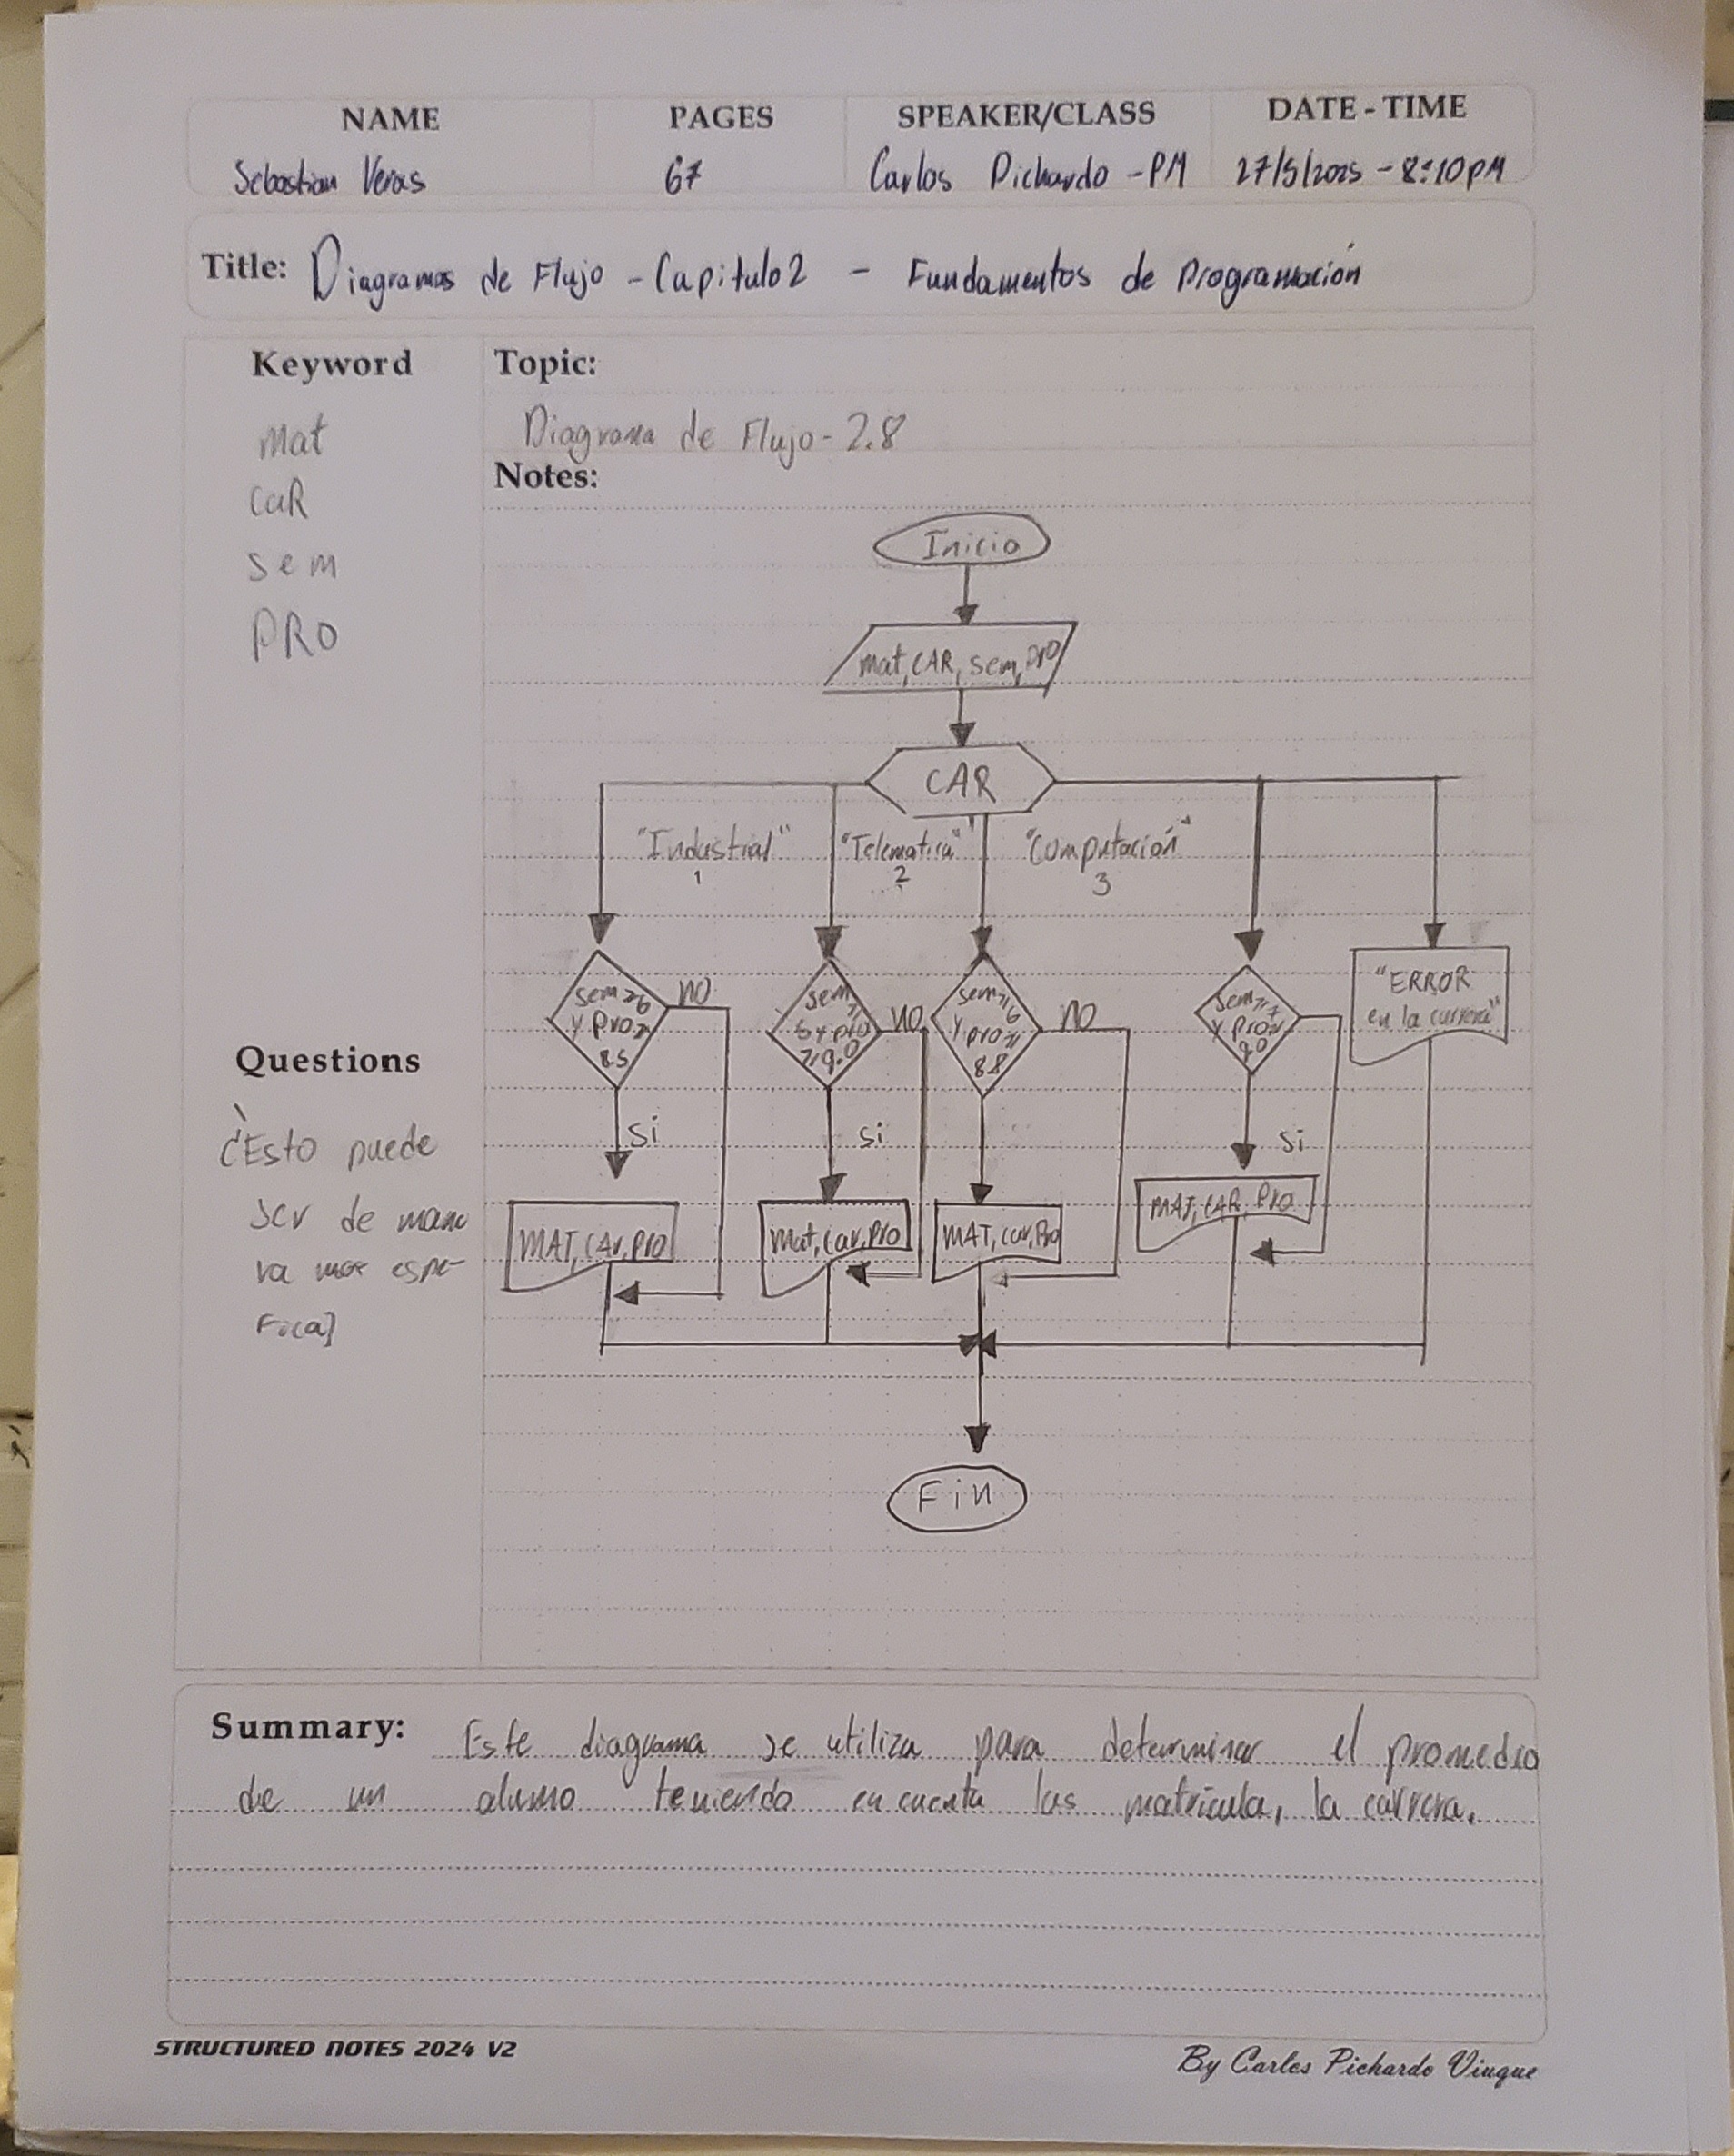 NAME PAGES SPEAKER/CLASS DATE - TIME
Sebastian Veras 67 Carlos Pichardo - PM 27/5/2025 - 8:10PM
Title: Diagramas de Flujo - Capitulo 2 - Fundamentos de Programación
Keyword
mat
caR
sem
PRO
Topic:
Diagrama de Flujo - 2.8
Notes:
Inicio
mat, CAR, sem, pro
CAR
"Industrial"
1
"Telematica"
2
"Computación"
3
sem ≥ 6
y Pro ≥
8.5
NO
sem
≥
5 y pro
≥ 9.0
NO
sem ≥ 6
y pro ≥
8.8
NO
sem ≥ 7
y pro ≥
9.0
"ERROR
en la carrera"
Si
Si
Si
MAT, CAr, pro
Mat, Car, pro
MAT, car, Pro
MAT, CAR, Pro
Fin
Questions
¿Esto puede
ser de mane
ra mas espe-
Fica?
Summary: Este diagrama se utiliza para determinar el promedio
de un alumo teniendo en cuenta las matricula, la carrera.
STRUCTURED NOTES 2024 V2
By Carlos Pichardo Viuque